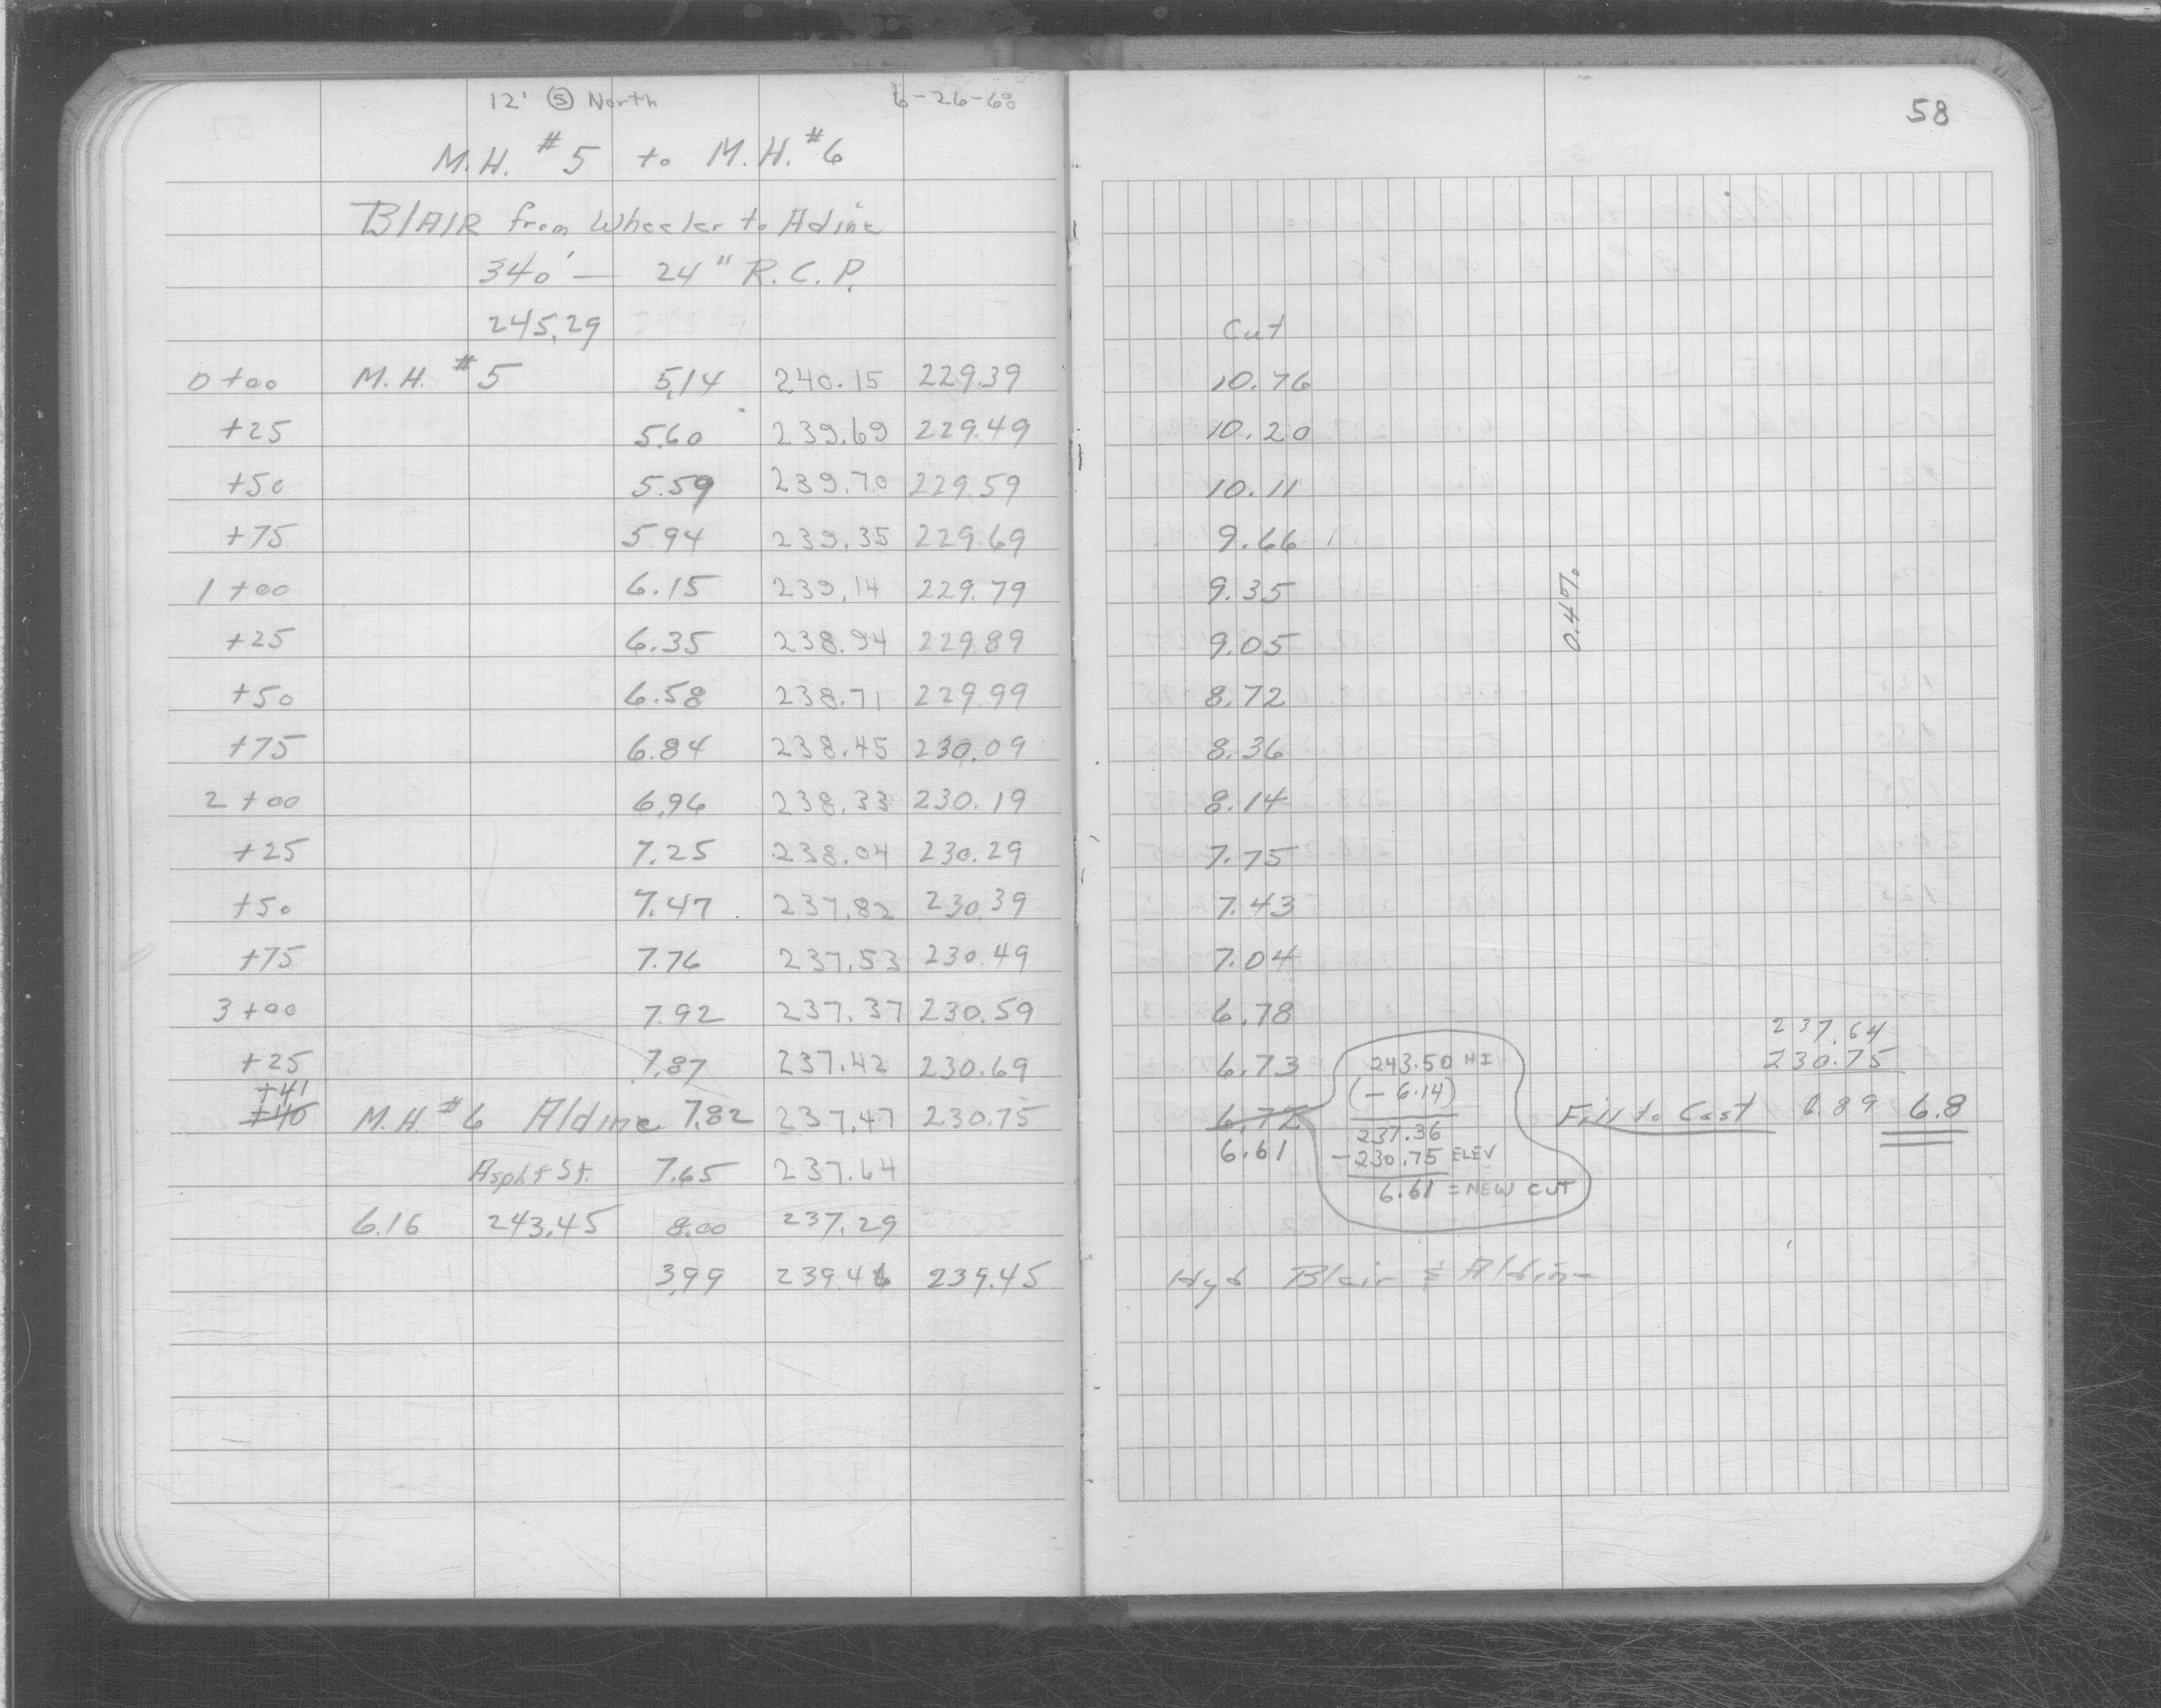 12' Ⓢ North 6-26-60
M.H. #5 to M.H. #6
BLAIR from Wheeler to Adine
340' — 24" R.C.P.
245.29
0+00 M.H. #5 5.14 240.15 229.39
+25 5.60 239.69 229.49
+50 5.59 239.70 229.59
+75 5.94 239.35 229.69
1+00 6.15 239.14 229.79
+25 6.35 238.94 229.89
+50 6.58 238.71 229.99
+75 6.84 238.45 230.09
2+00 6.96 238.33 230.19
+25 7.25 238.04 230.29
+50 7.47 237.82 230.39
+75 7.76 237.53 230.49
3+00 7.92 237.37 230.59
+25 7.87 237.42 230.69
+41
+40 M.H. #6 Aldine 7.82 237.47 230.75
Asphlt St. 7.65 237.64
6.16 243.45 8.00 237.29
3.99 239.46 239.45
58
Cut
10.76
10.20
10.11
9.66
9.35
9.05
8.72
8.36
8.14
7.75
7.43
7.04
6.78
6.73
6.72
6.61
0.4%
243.50 HI
(-6.14)
237.36
-230.75 ELEV
6.61 = NEW CUT
237.64
230.75
Fill to Cast 6.89 6.8
Hyd Blair & Aldine